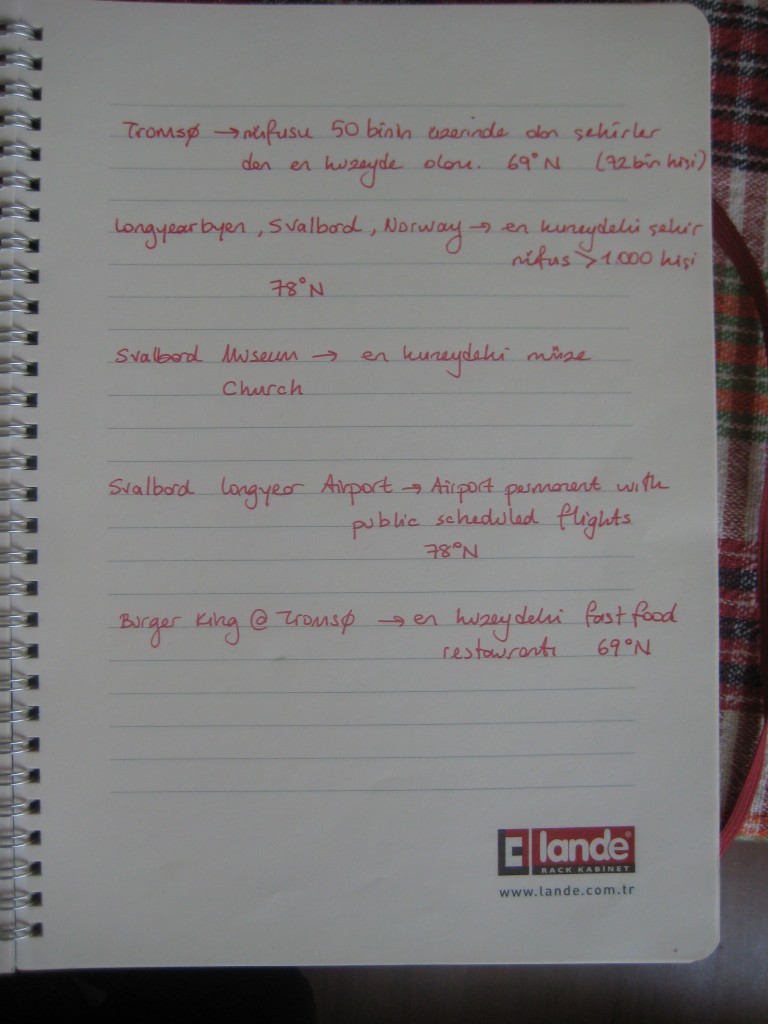 Tromsø → nüfusu 50 binin üzerinde olan şehirler
den en kuzeyde olanı. 69°N (72 bin kişi)
Longyearbyen, Svalbard, Norway → en kuzeydeki şehir
nüfus > 1.000 kişi
78°N
Svalbard Museum → en kuzeydeki müze
Church
Svalbard Longyear Airport → Airport permanent with
public scheduled flights
78°N
Burger King @ Tromsø → en kuzeydeki fast food
restaurantı 69°N
lande®
RACK KABİNET
www.lande.com.tr